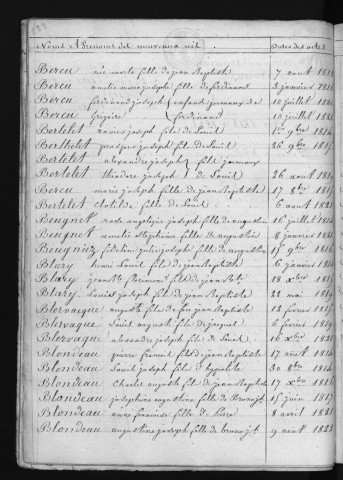 Noms & Prénoms des nouveaux nés. Dates des actes
Bercu née morte fille de jean Baptiste 7 aout
Bercu amélie marie joseph fille de ferdinand 3 janvier
Bercu ferdinand joseph enfants jumeaux de 10 juillet
Bercu Grégoire ferdinand 10 juillet
Bertelet xavier joseph fils de Louis 9bre
Berthelet prosper joseph fils de Louis 26 9bre 1815
Bertelet alexandre joseph fils jumeaux
Bertelet théodore joseph de Louis 26 aout
Bercu marie joseph fille de jean Baptiste 17 8bre
Bertelet clotilde fille de Louis 6 aout 1821
Beugnet rose angélique joseph fille de augustin 16 juillet
Beugnet amélie Stéphanie fille de augustin 8 janvier
Beugniez joseph fille de augustin 15 9bre 1816
Blary henri Louis fils de jean Baptiste 6 janvier
Blary jean Bte fils de jean Bte 18 Xbre
Blary Louis joseph fils de jean Baptiste 22 mai
Blervacque auguste fils de feu jean Baptiste 12 février 1815
Blervaque Louis auguste fils de jacques 6 février
Blervaque alexandre joseph fils de Louis 16 Xbre
Blondeau pierre florent fils de jean Baptiste 17 aout
Blondeau Louis joseph fils d'hypolite 30 8bre
Blondeau Charles auguste fils de jean Baptiste 17 Xbre 1816
Blondeau joséphine augustine fille de Bruno jh 15 juin 1817
Blondeau anne françoise fille de Pierre 8 avril 1821
Blondeau augustine joseph fille de bruno jh 9 aout 1822